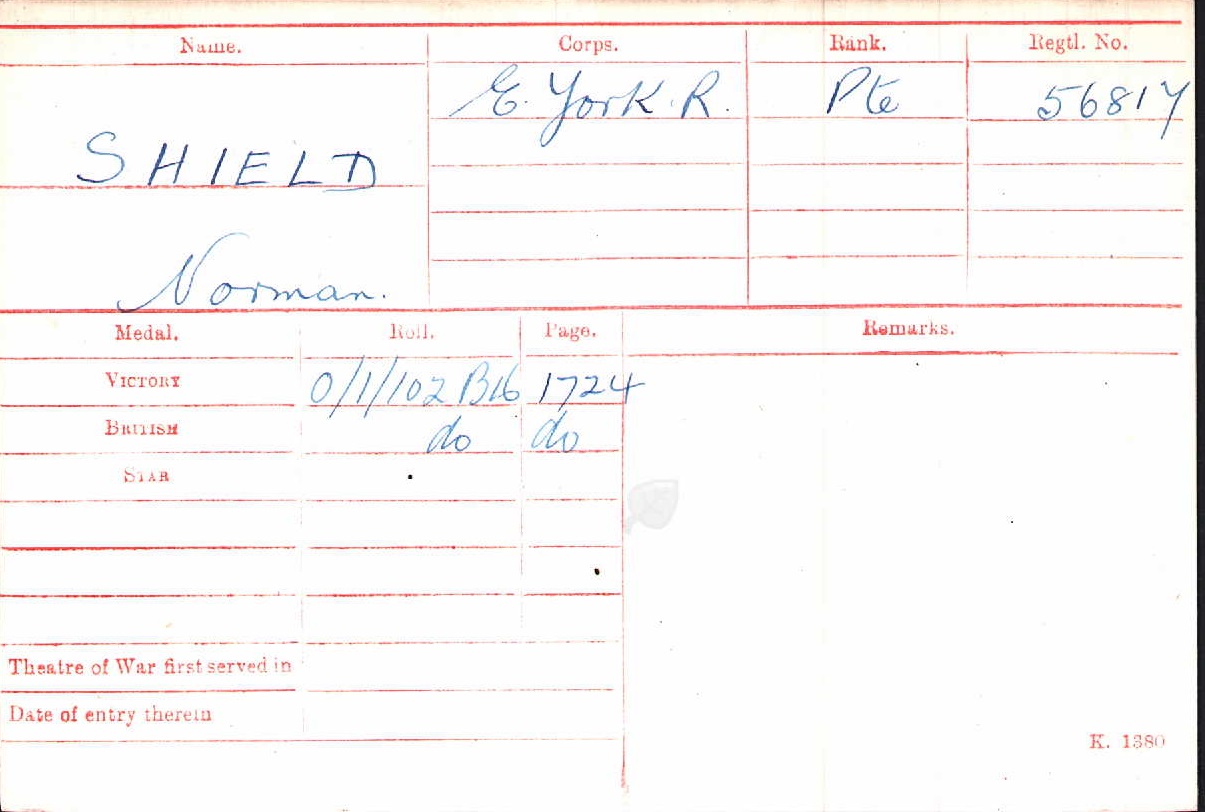 Name. Corps. Rank. Regtl. No.
E. York. R. Pte 56817
SHIELD
Norman.
Medal. Roll. Page. Remarks.
VICTORY 0/1/102 B16 1724
BRITISH do do
STAR
Theatre of War first served in
Date of entry therein
K. 1380